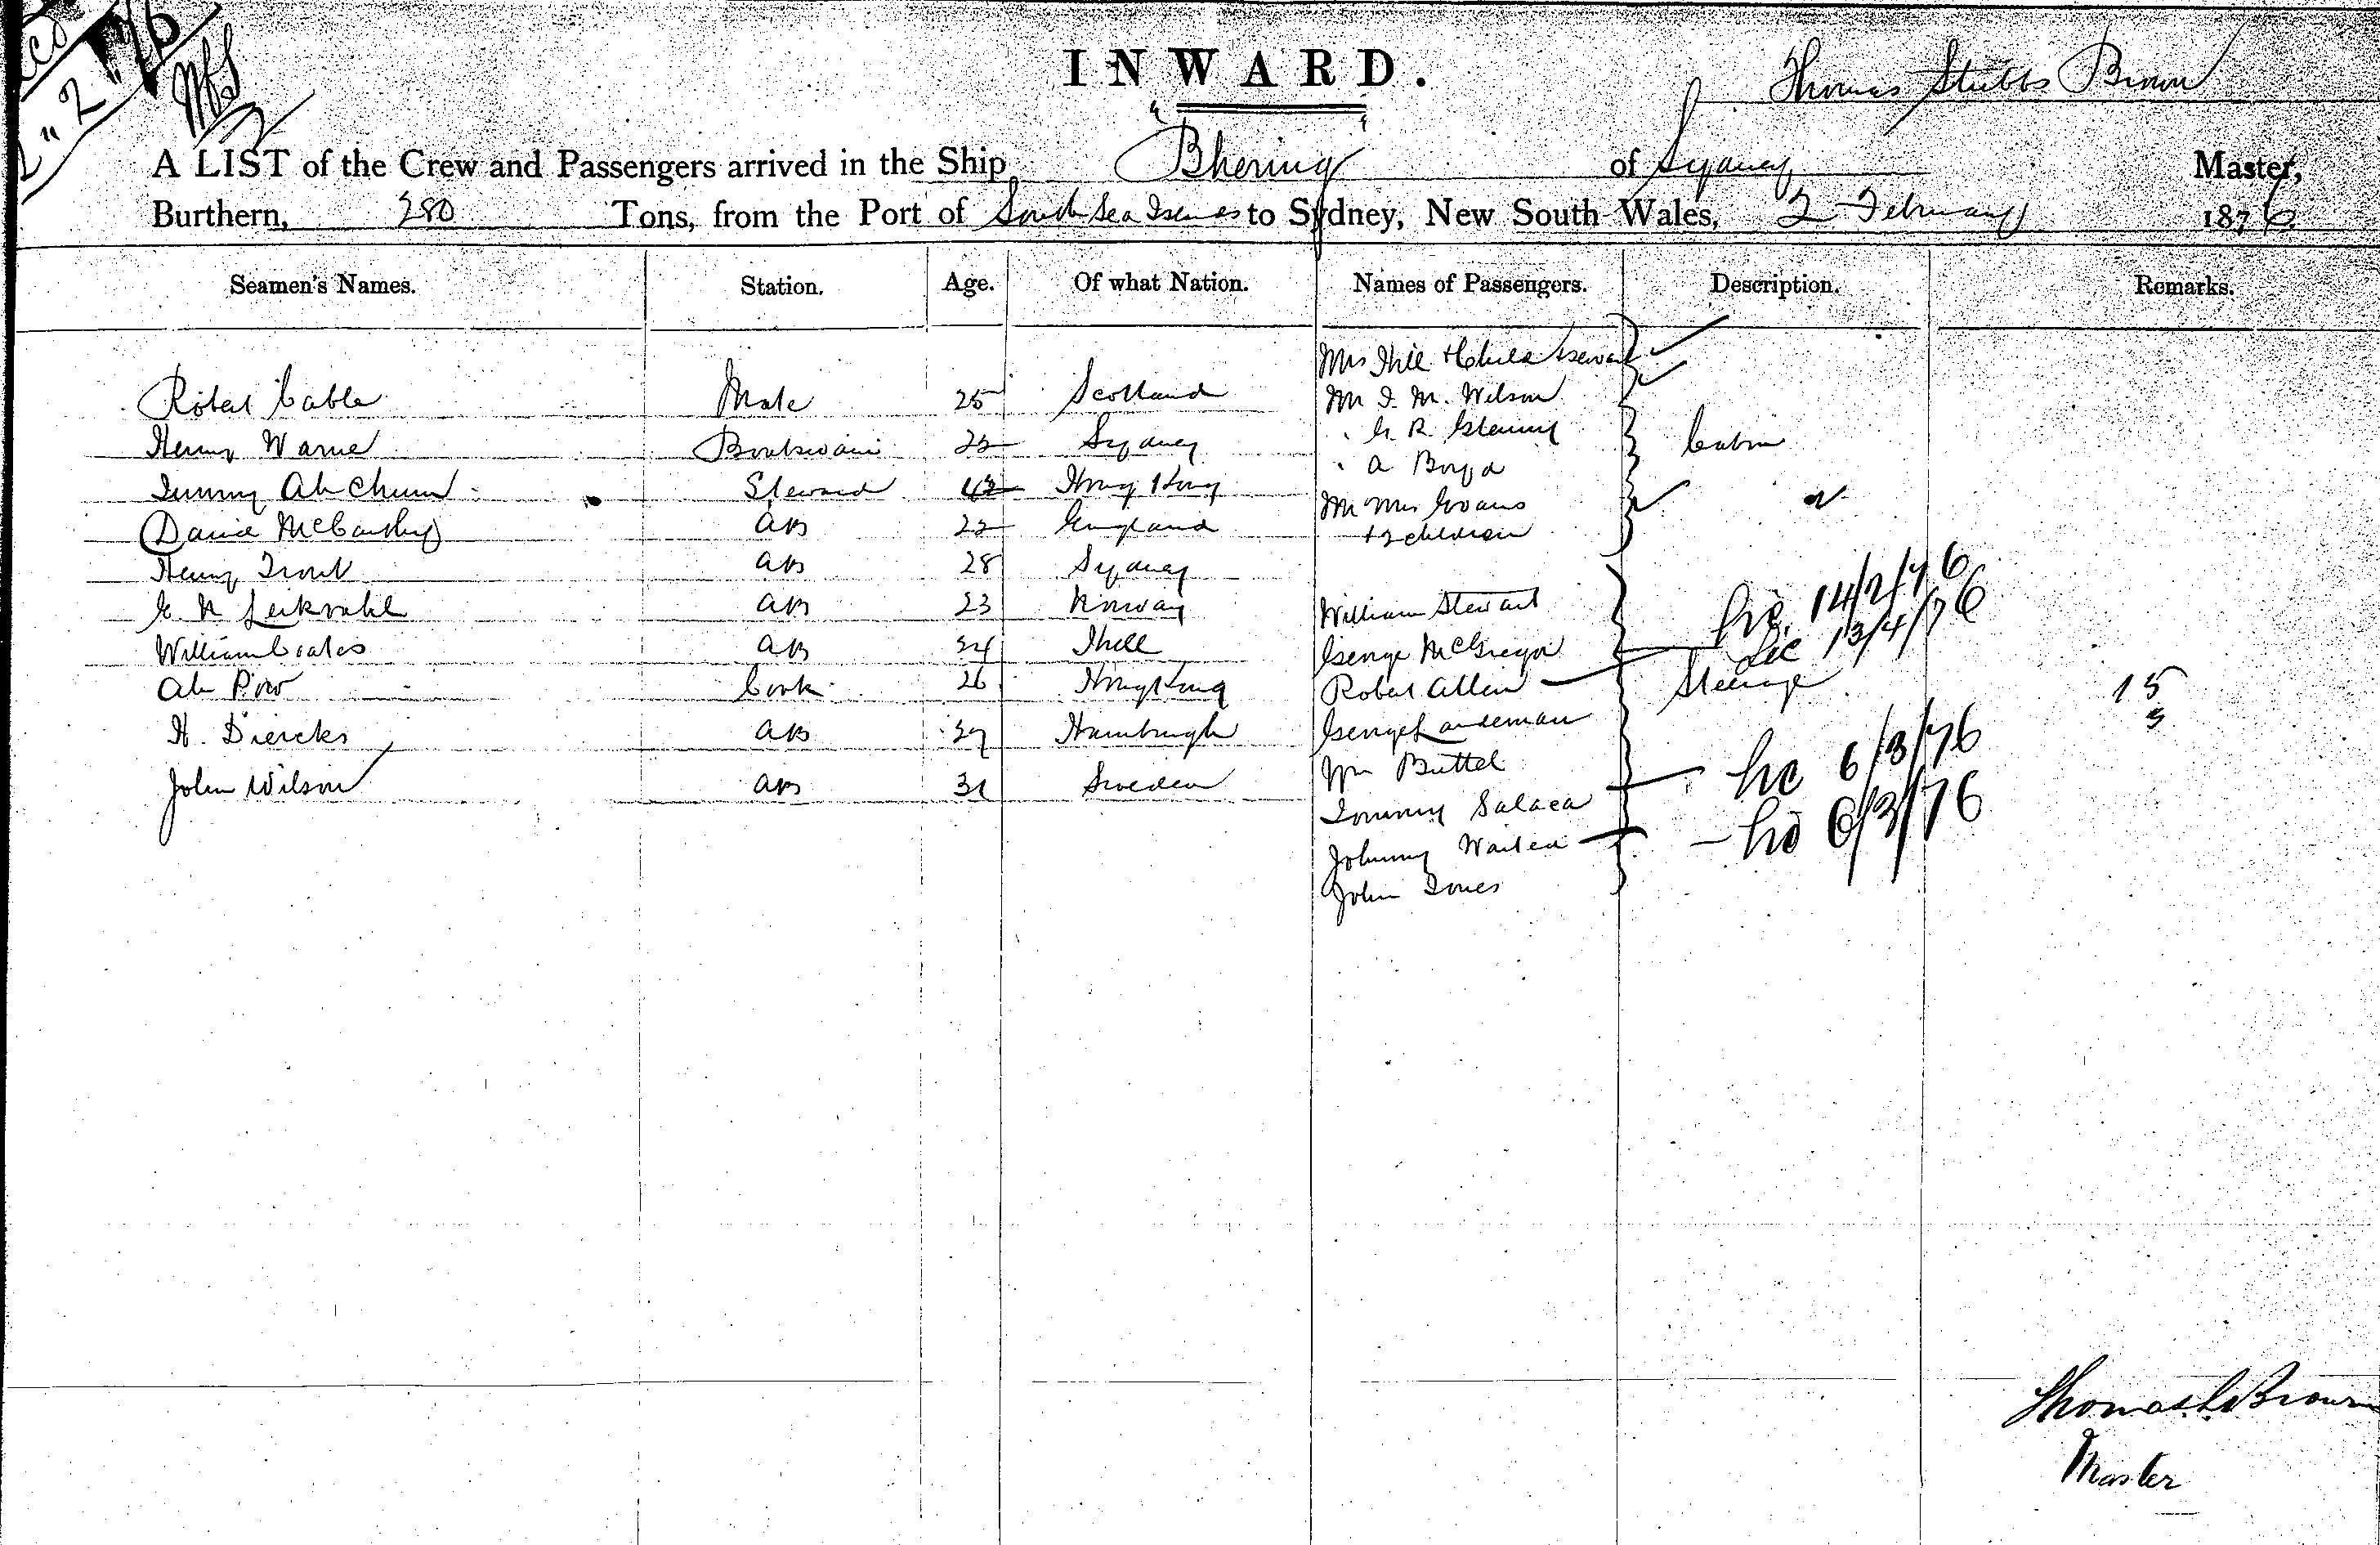 2 " 2 " 76
INWARD.
Thomas Stubbs Brown
A LIST of the Crew and Passengers arrived in the Ship Bhering of Sydney Master,
Burthern, 280 Tons, from the Port of South Sea Islands to Sydney, New South Wales, 2 February 1876
Seamen's Names. Station. Age. Of what Nation. Names of Passengers. Description. Remarks.
Mrs Hill & Child & servant
Robert Cable Mate 25 Scotland Mr I. M. Wilson
Henry Warne Boatswain 22 Sydney " G. R. Cabin
Jimmy Ah Chum Steward 42 Hong Kong " A Boyd
David McCarthy AB 22 England Mr Mrs Evans
+ 2 children
Henry Trout AB 28 Sydney
AB 23 Norway William Stewart 14/2/76
William Coates AB 24 Hull George McGregor 13/4/76
Ah Pow Cook 26 Hong Kong Robert Allen Steerage 15
3
H. Diercks AB 27 Hamburgh George Landeman
Wm Buttel 6/3/76
John Wilson AB 31 Sweden Tommy Salaca
Johnny Waitea 6/3/76
John Jones
Thomas S. Brown
Master